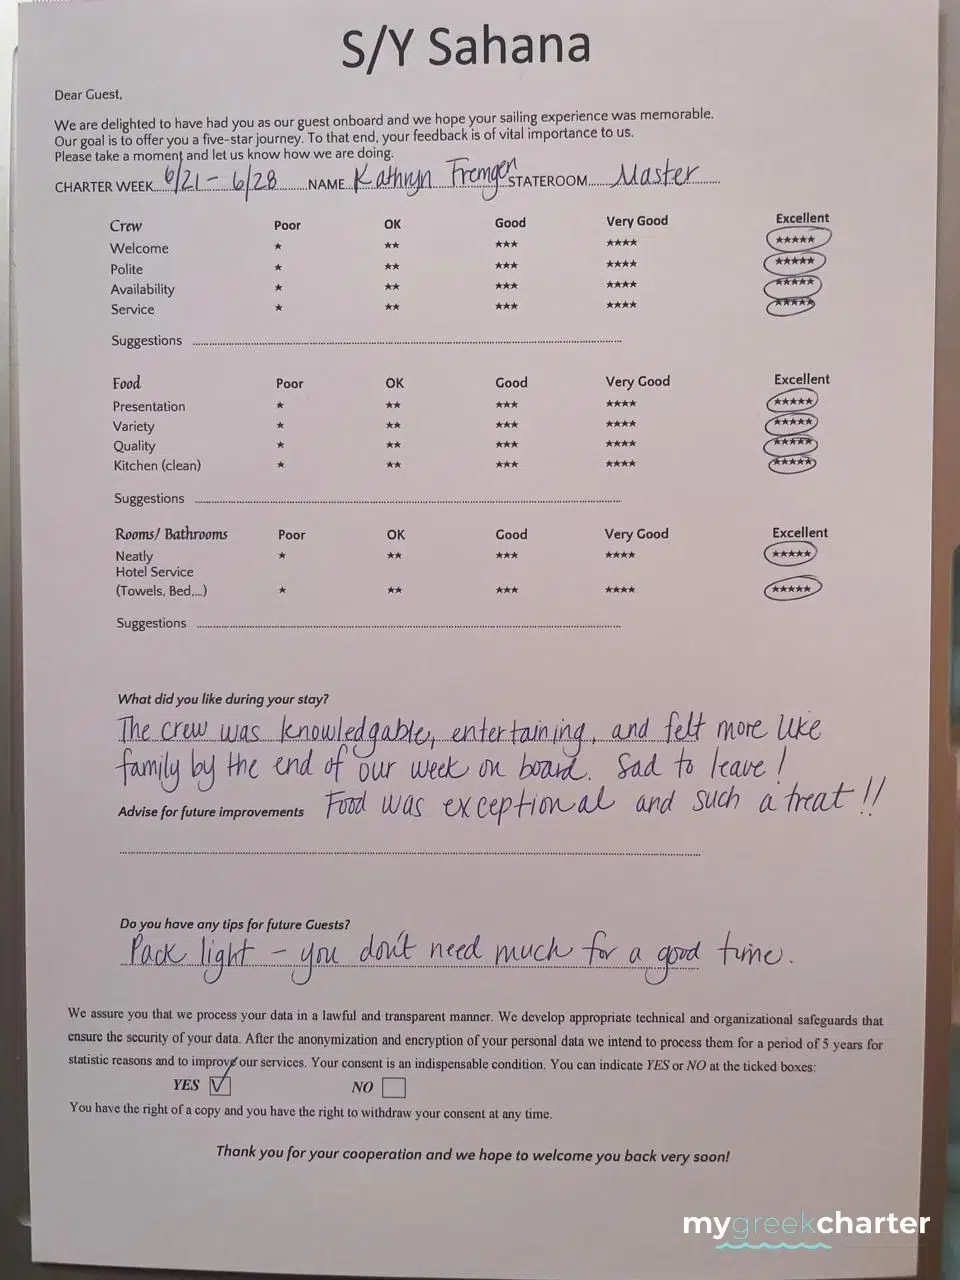 S/Y Sahana
Dear Guest,
We are delighted to have had you as our guest onboard and we hope your sailing experience was memorable.
Our goal is to offer you a five-star journey. To that end, your feedback is of vital importance to us.
Please take a moment and let us know how we are doing.
CHARTER WEEK 6/21 - 6/28 NAME Kathryn Fremgen STATEROOM Master
Crew Poor OK Good Very Good Excellent
Welcome ★ ★★ ★★★ ★★★★ ★★★★★
Polite ★ ★★ ★★★ ★★★★ ★★★★★
Availability ★ ★★ ★★★ ★★★★ ★★★★★
Service ★ ★★ ★★★ ★★★★ ★★★★★
Suggestions
Food Poor OK Good Very Good Excellent
Presentation ★ ★★ ★★★ ★★★★ ★★★★★
Variety ★ ★★ ★★★ ★★★★ ★★★★★
Quality ★ ★★ ★★★ ★★★★ ★★★★★
Kitchen (clean) ★ ★★ ★★★ ★★★★ ★★★★★
Suggestions
Rooms/ Bathrooms Poor OK Good Very Good Excellent
Neatly ★ ★★ ★★★ ★★★★ ★★★★★
Hotel Service
(Towels, Bed,...) ★ ★★ ★★★ ★★★★ ★★★★★
Suggestions
What did you like during your stay?
The crew was knowledgable, entertaining, and felt more like
family by the end of our week on board. Sad to leave!
Advise for future improvements Food was exceptional and such a treat!!
Do you have any tips for future Guests?
Pack light - you don't need much for a good time.
We assure you that we process your data in a lawful and transparent manner. We develop appropriate technical and organizational safeguards that
ensure the security of your data. After the anonymization and encryption of your personal data we intend to process them for a period of 5 years for
statistic reasons and to improve our services. Your consent is an indispensable condition. You can indicate YES or NO at the ticked boxes:
YES NO
You have the right of a copy and you have the right to withdraw your consent at any time.
Thank you for your cooperation and we hope to welcome you back very soon!
mygreekcharter